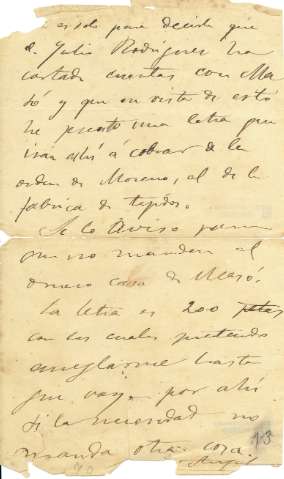 es solo para decirle que
D. Julio Rodriguez ha
cortado cuentas con Ma
só y que en vista de esto
he puesto una letra que
iran ahí á cobrar de la
orden de Moreno, el de la
fabrica de tejidos.
Se lo aviso para
que no manden el
dinero casa de Masó.
La letra es 200 ptas
con las cuales pretendo
arreglarme hasta
que vaya por ahí
si la necesidad no
manda otra cosa.
Angel